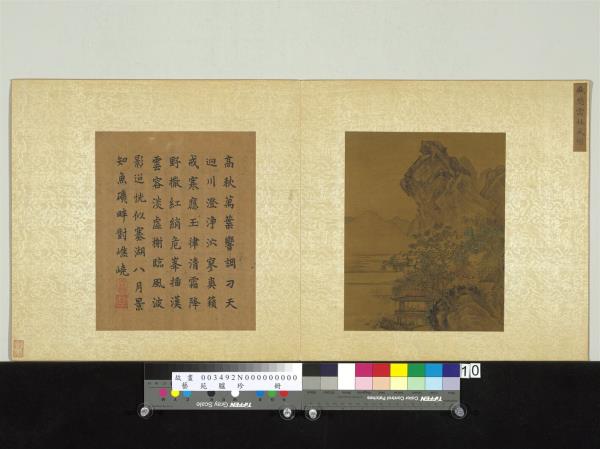 高秋萬葉響調刁天
迥川澄淨泬寥爽籟
戒寒應玉律清霜降
野撒紅綃危峯插漢
雲容淡虛榭臨風波
影恍似塞湖八月景
知魚磯畔對嶕嶢
故畫 003492N000000000
藝苑臚珍 冊
TIFFEN Gray Scale
TIFFEN Color Control Patches
10